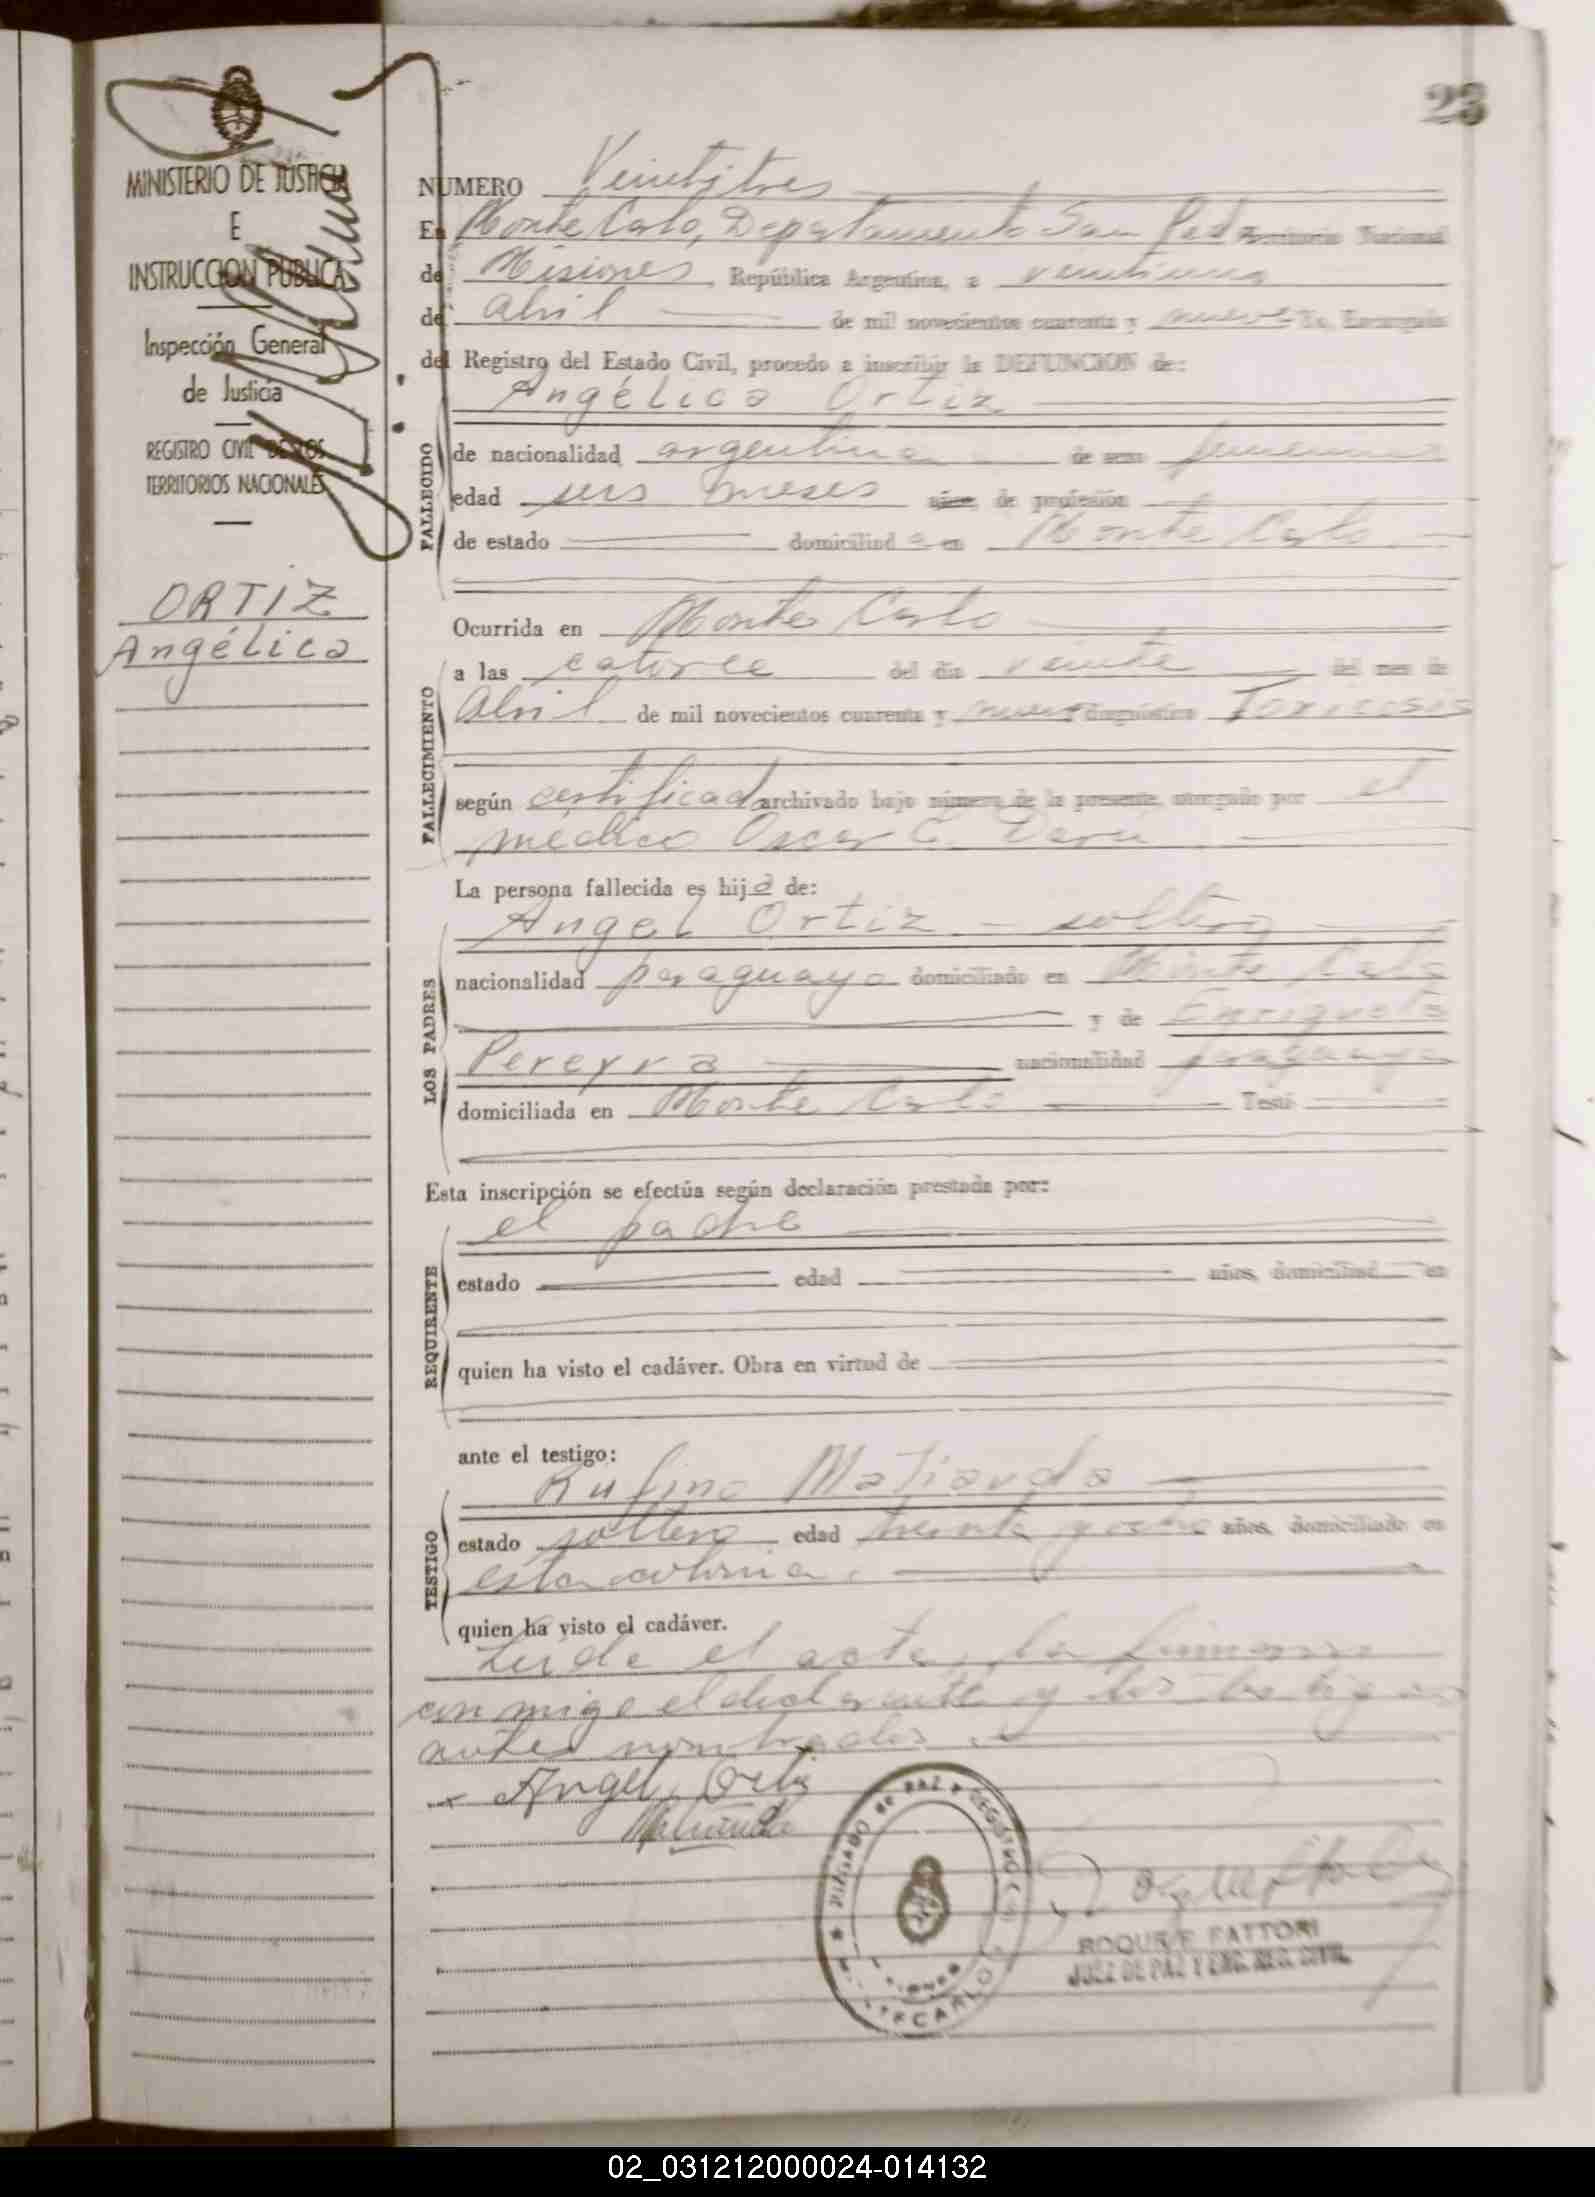 23
MINISTERIO DE JUSTICIA
E
INSTRUCCION PUBLICA
Inspección General
de Justicia
REGISTRO CIVIL DE LOS
TERRITORIOS NACIONALES
ORTIZ
Angélica
NUMERO Veintitres
En Monte Carlo, Departamento San Pedro Territorio Nacional
de Misiones, República Argentina, a veintiuno
de abril de mil novecientos cuarenta y nueve Yo, Encargado
del Registro del Estado Civil, procedo a inscribir la DEFUNCION de:
Angélica Ortiz
FALLECIDO
de nacionalidad argentina de sexo femenino
edad seis meses años, de profesión
de estado domiciliad a en Monte Carlo
Ocurrida en Monte Carlo
FALLECIMIENTO
a las catorce del día veinte del mes de
abril de mil novecientos cuarenta y nueve diagnóstico Toxicosis
según certificado archivado bajo número de la presente, otorgado por el
médico Oscar C.
La persona fallecida es hija de:
LOS PADRES
Angel Ortiz - soltero
nacionalidad paraguaya domiciliado en Monte Carlo
y de Enriqueta
Pereyra nacionalidad paraguaya
domiciliada en Monte Carlo Testó
Esta inscripción se efectúa según declaración prestada por:
REQUIRENTE
el padre
estado edad años, domiciliad en
quien ha visto el cadáver. Obra en virtud de
ante el testigo:
TESTIGO
Rufino Matiauda
estado soltero edad treinta y ocho años, domiciliado en
esta colonia.
quien ha visto el cadáver.
Leída el acta, la firmaron
conmigo el declarante y los testigos
antes nombrados.
x Angel Ortiz
Matiauda
JUZGADO DE PAZ Y REGISTRO CIVIL
MISIONES
MONTECARLO
ROQUE F. FATTORI
JUEZ DE PAZ Y ENC. REG. CIVIL
02_031212000024-014132